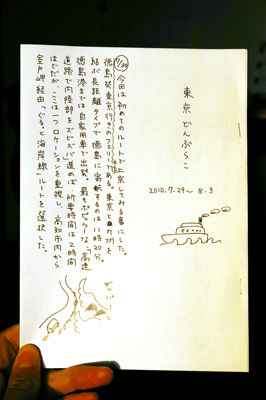 東京どんぶらこ
2010.7.29〜8.3
7/29 今回は初めてのルートで上京してみる事にした。
徳島発東京行きのフェリーである。東京と九州を
結ぶ長距離タイプで徳島に寄航するのは11時20分。
徳島港までは自家用車で出発。最もポピュラーな「高速
道路で内陸部をズビズバ」進めば、所要時間は2時間
ほどだが、ここは一つロケーションを重視し、高知市内から
室戸岬経由「ぐるっと海岸線」ルートを選択した。
ザッパーン